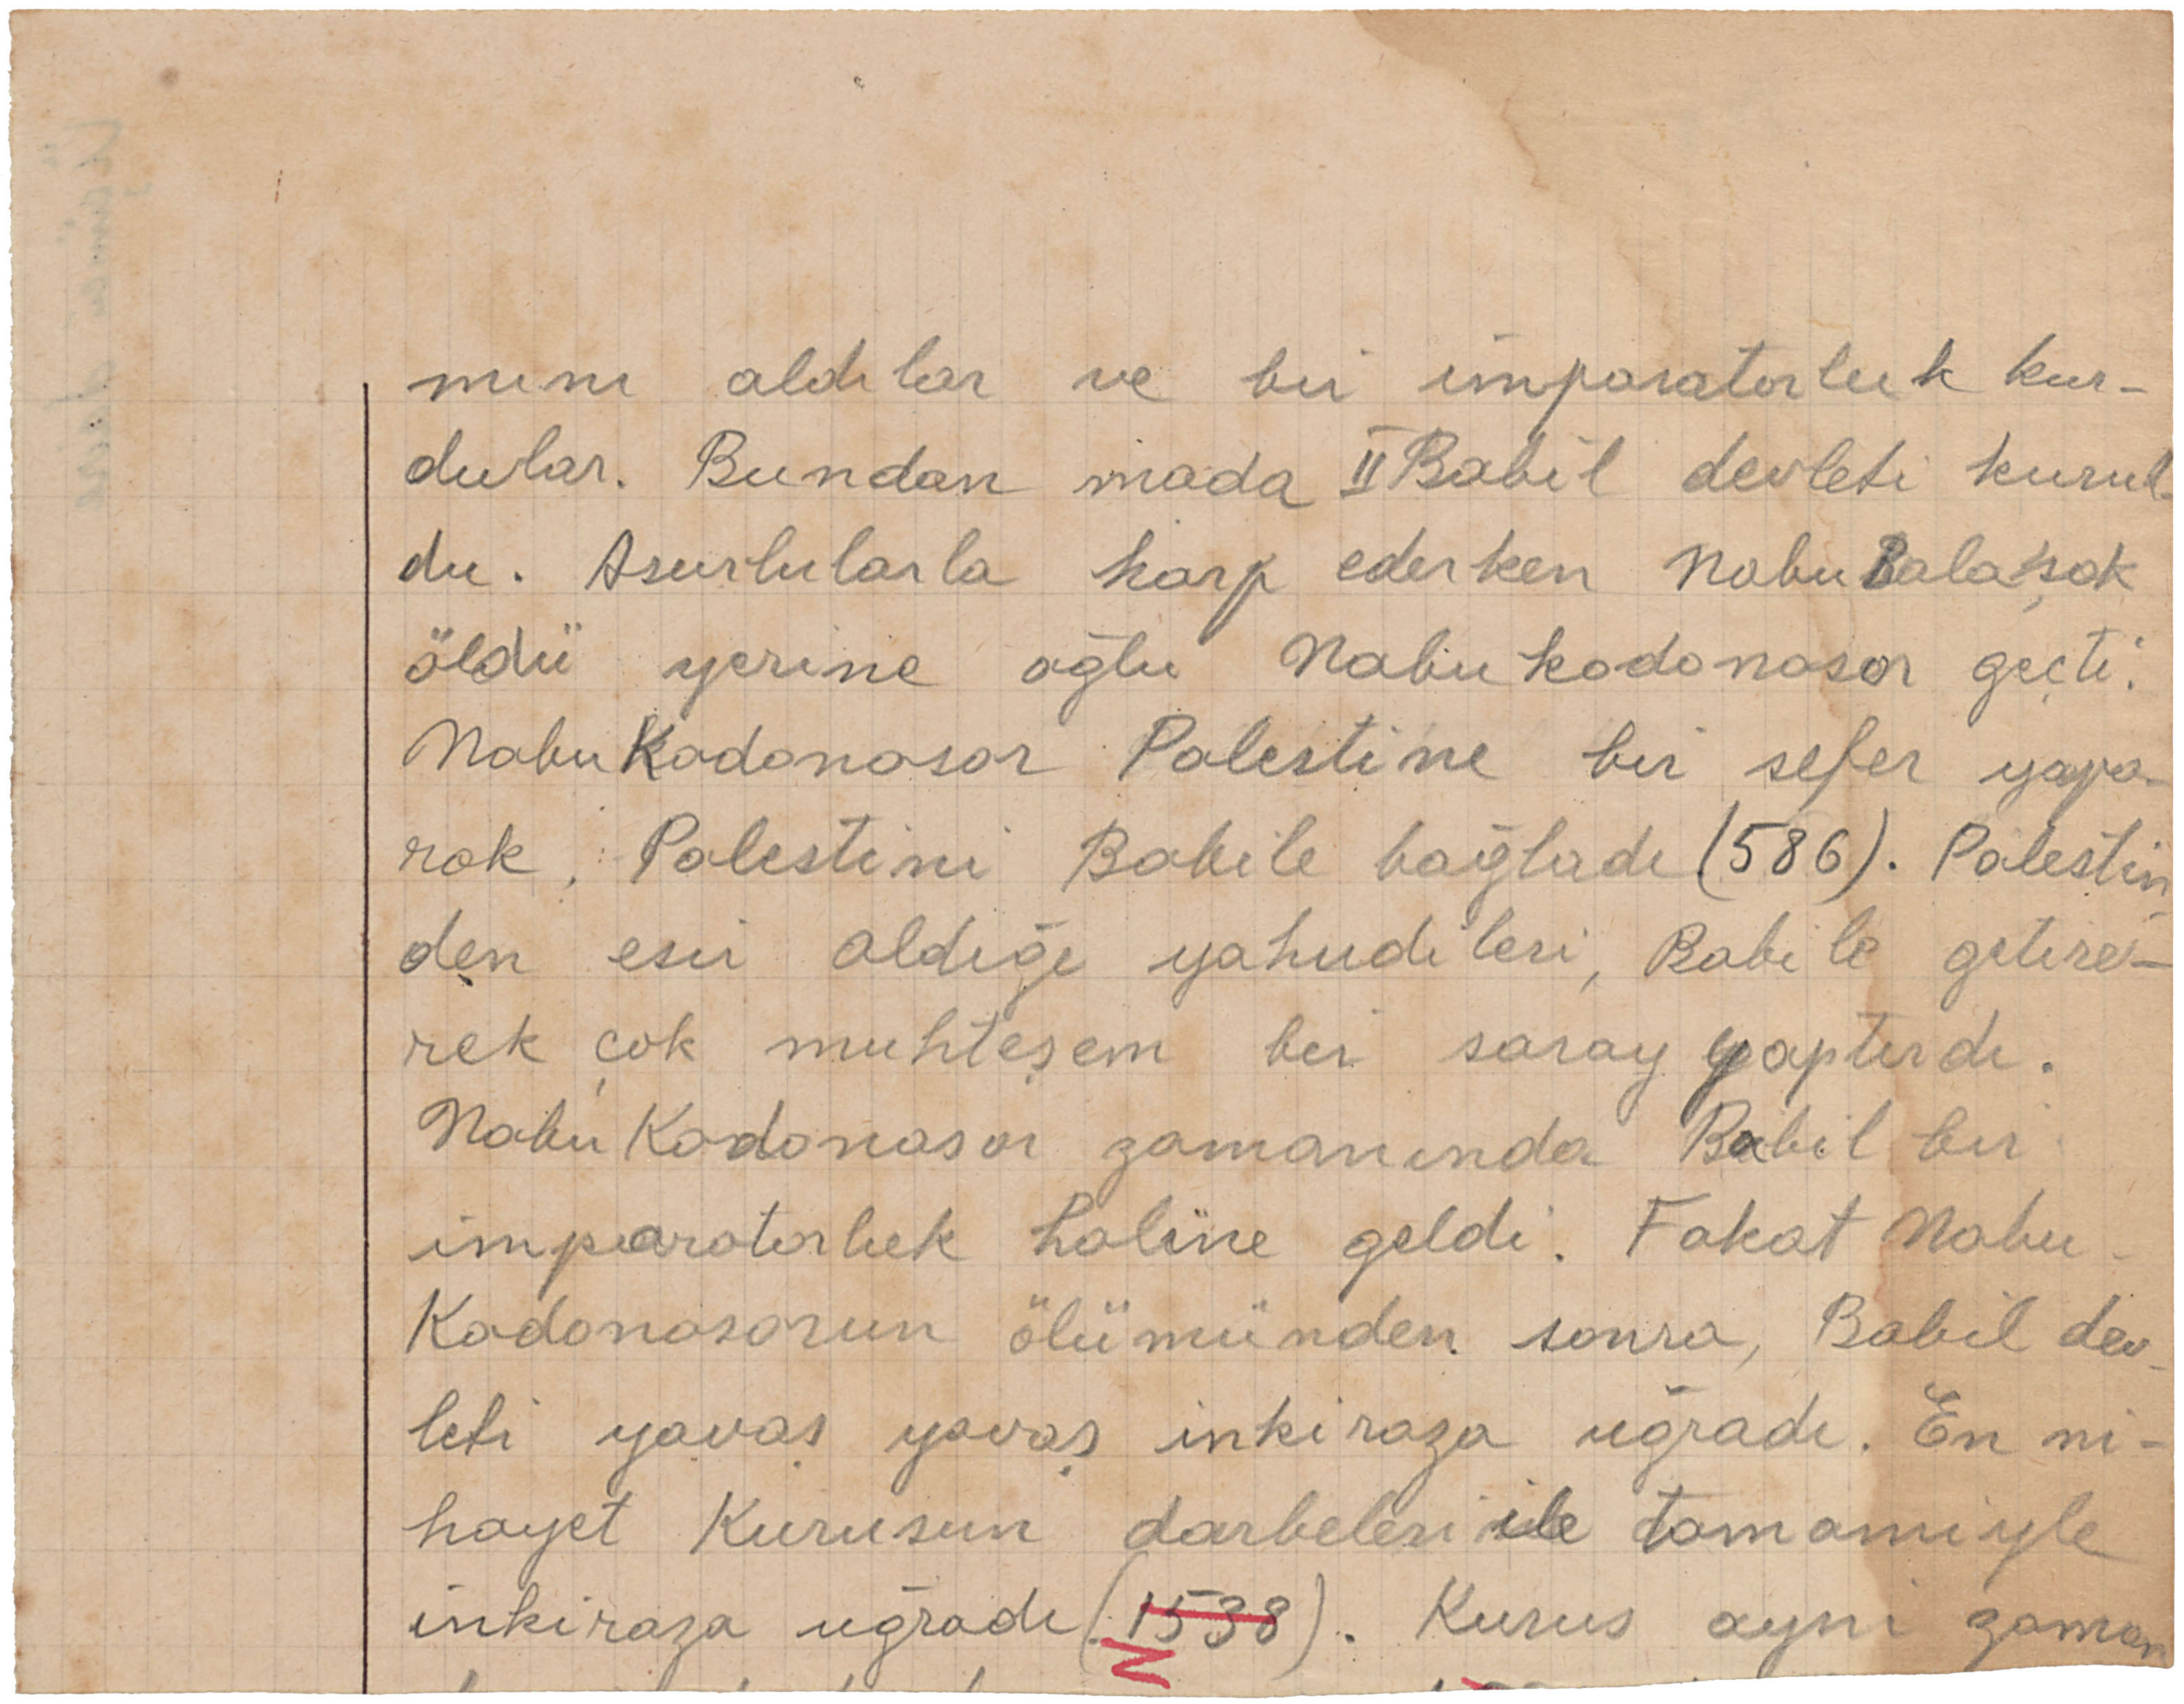 mını aldılar ve bir imparatorluk kur-
dular. Bundan mada II Babil devleti kurul-
du. Asurlularla harp ederken Nabu Balasak
öldü yerine oğlu Nabukodonosor geçti.
Nabu Kodonosor Palestine bir sefer yapa-
rak, Palestini Babile bağladı (586). Palestin-
den esir aldığı yahudileri, Babile getire-
rek çok muhteşem bir saray yaptırdı.
Nabu Kodonosor zamanında Babil bir
imparatorluk haline geldi. Fakat Nabu-
Kodonosorun ölümünden sonra, Babil dev-
leti yavaş yavaş inkiraza uğradı. En ni-
hayet Kurusun darbeleri ile tamamiyle
inkiraza uğradı (1538). Kurus ayni zaman